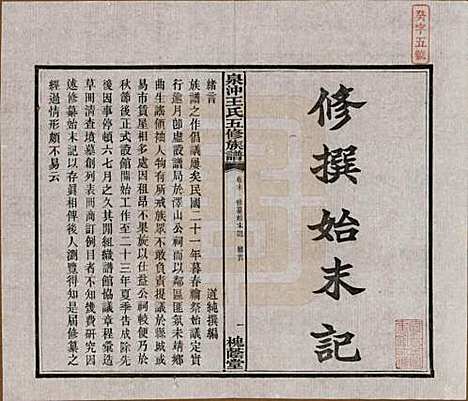 癸字五號
修撰始末記
泉沖王氏五修族譜
卷末
修纂始末記
緒言
一
槐蔭堂
緒言
道純撰編
族譜之作倡議屢矣民國二十一年暮春禴祭始議定實
行逾月卽虛設譜局於澤山公祠而以鄰區匪氛未靖鄉
曲生謠傾揣人物有所戒族眾不敢負責提議於縣城或
易市賃屋相多處因租昂不果旋以仕益公祠較便乃於
秋節後正式設館開始工作至二十三年夏季告成除先
後因事停頓六七月之久其間規議章程彙造
草冊清查墳墓創列表目商訂款目不知幾費研究因
述修纂始末記以存眞相俾後人瀏覽得知是屆修纂之
經過情形頗不易云